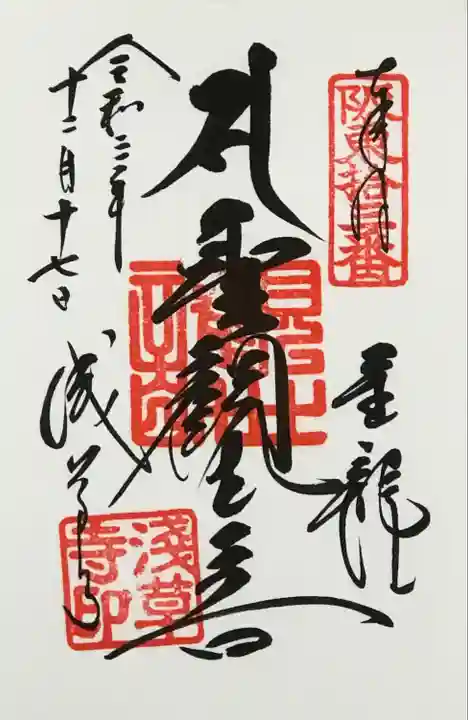 奉拝
阪東拾三番
金龍
聖観世音
令和三年
十二月十七日
浅草寺
淺草寺印